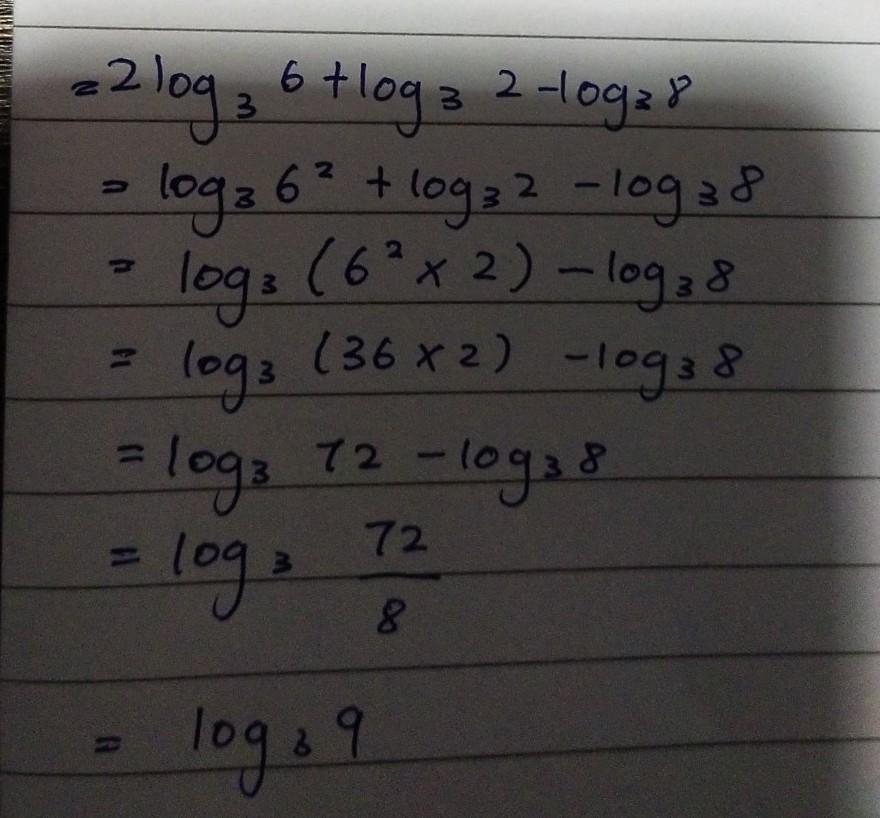 =2log₃ 6+log₃ 2-log₃8
= log₃6² + log₃2 -log₃8
= log₃(6²×2)-log₃8
= log₃(36×2) -log₃8
=log₃ 72 -log₃8
=log₃ 72/8
= log₃9